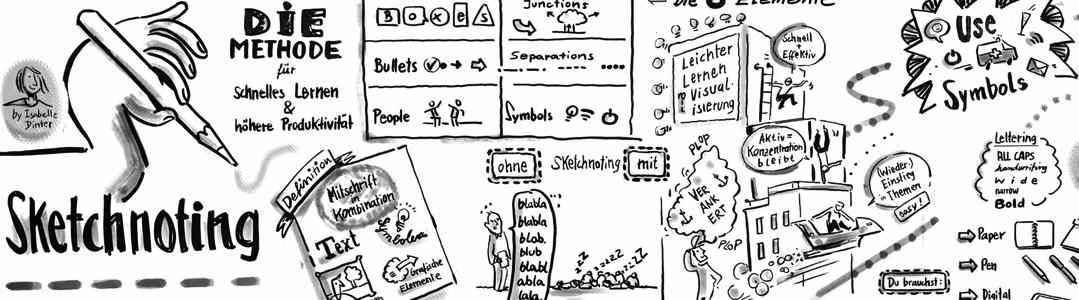 by Isabelle
Dinter
Sketchnoting
DIE
METHODE
für
Schnelles Lernen
&
höhere Produktivität
Definition
Mitschrift
in
Kombination
Text
Symbolen
Grafische
Elemente
Boxes
Bullets
People
Junctions
Separations
Symbols
ohne
SKetchnoting
mit
blabla
blabla
blab.
blub
blabl
abla
lala.
zZ
zZZ
zZZ
Die
Elemente
Leichter
Lernen
Visual-
isierung
Schnell
+
Effektiv
PLOP
VER
ANK
ERT
PLOP
Aktiv =
Konzentration
bleibt
(Wieder)
Einstieg
in Themen
easy!
Use
Symbols
Lettering
ALL CAPS
handwriting
wide
narrow
Bold
Du brauchst:
Paper
Pen
Digital